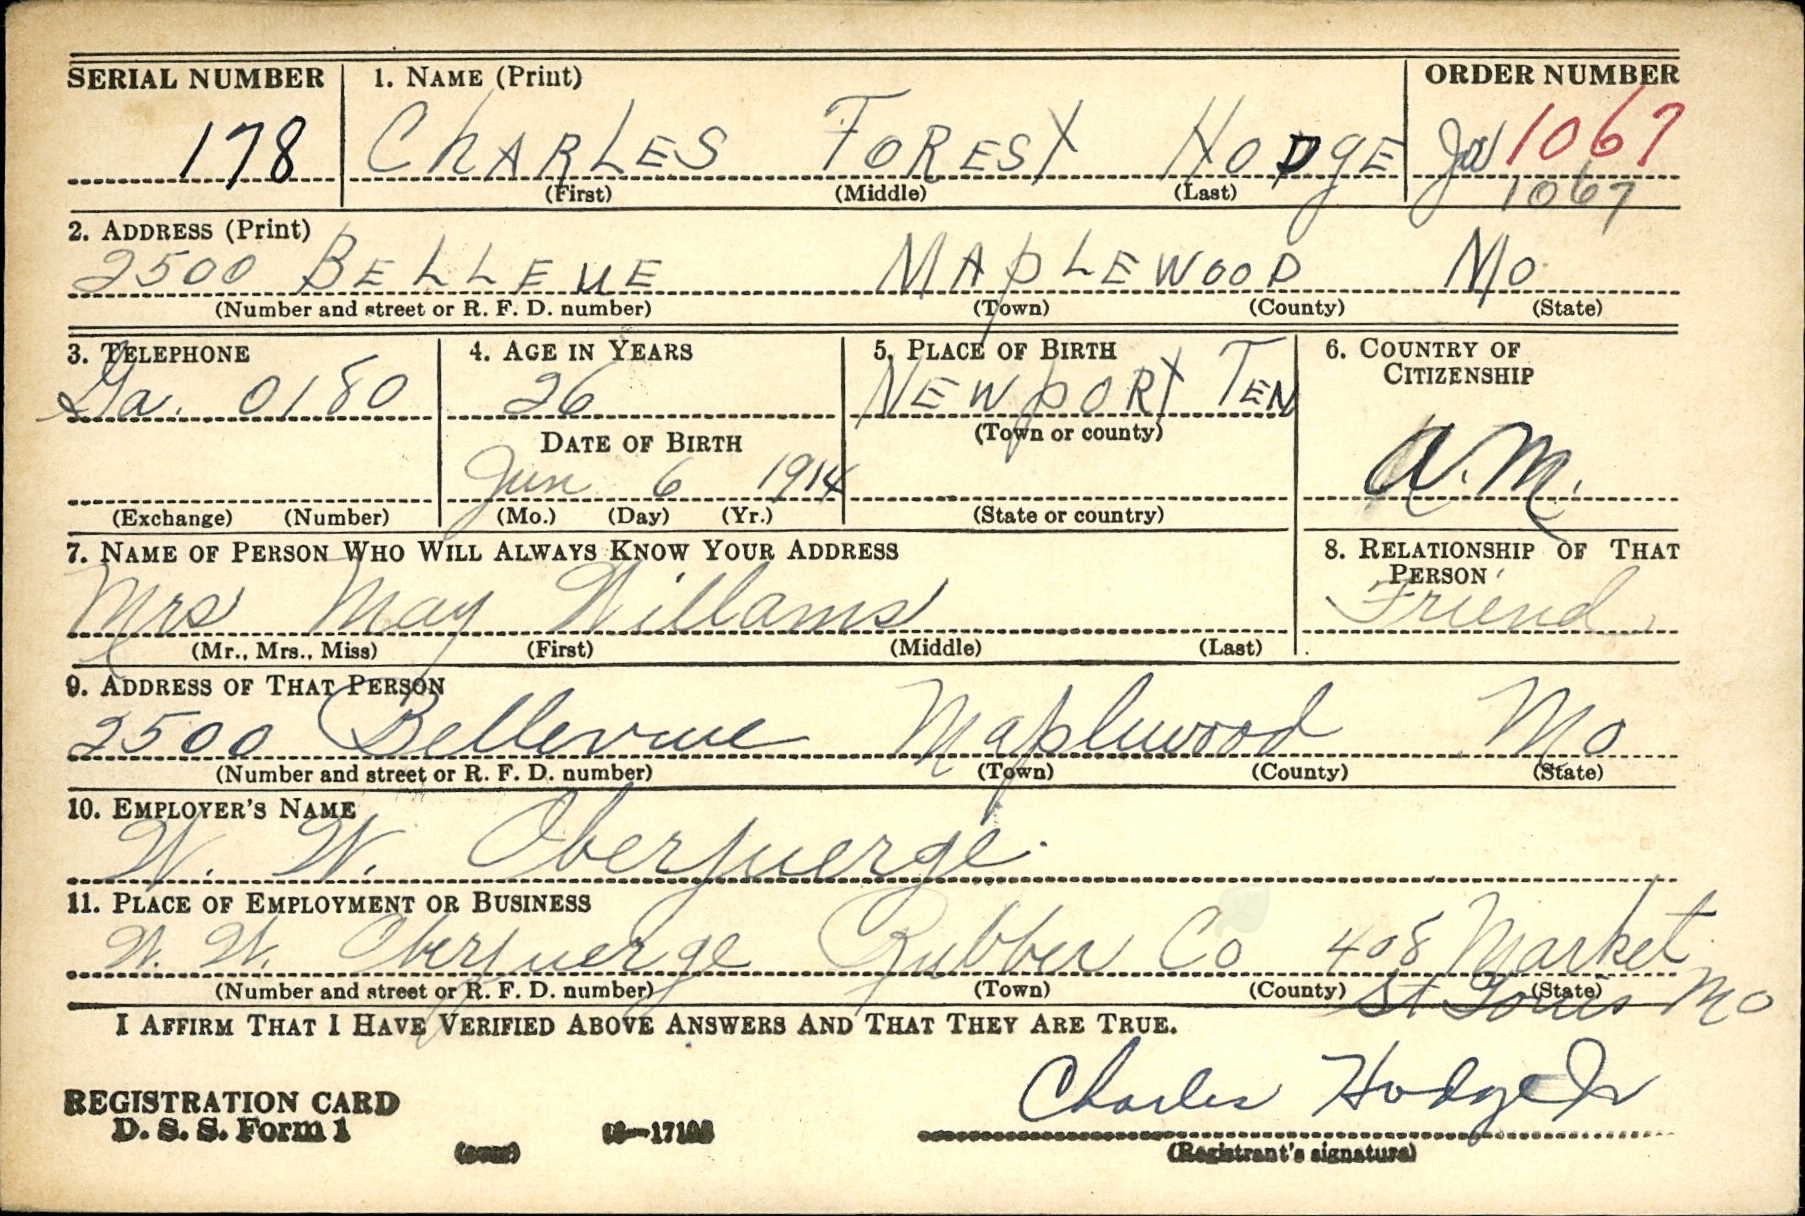 SERIAL NUMBER 1. NAME (Print) ORDER NUMBER
178 CHARLES FOREST HODGE Jr 1067
(First) (Middle) (Last) 1067
2. ADDRESS (Print)
2500 BELLEUE MAPLEWOOD Mo
(Number and street or R. F. D. number) (Town) (County) (State)
3. TELEPHONE 4. AGE IN YEARS 5. PLACE OF BIRTH 6. COUNTRY OF
CITIZENSHIP
Ga. 0180 26 NEWPORT TEN
DATE OF BIRTH (Town or county)
Jun 6 1914 A.M.
(Exchange) (Number) (Mo.) (Day) (Yr.) (State or country)
7. NAME OF PERSON WHO WILL ALWAYS KNOW YOUR ADDRESS 8. RELATIONSHIP OF THAT
PERSON
Mrs May Willams Friend
(Mr., Mrs., Miss) (First) (Middle) (Last)
9. ADDRESS OF THAT PERSON
2500 Bellevue Maplewood Mo
(Number and street or R. F. D. number) (Town) (County) (State)
10. EMPLOYER'S NAME
W. W. Oberjuerge.
11. PLACE OF EMPLOYMENT OR BUSINESS
W. W. Oberjuerge Rubber Co 408 Market
(Number and street or R. F. D. number) (Town) (County) (State)
St Louis Mo
I AFFIRM THAT I HAVE VERIFIED ABOVE ANSWERS AND THAT THEY ARE TRUE.
Charles Hodge Jr
REGISTRATION CARD
D. S. S. Form 1 (over) 16—17105
(Registrant's signature)